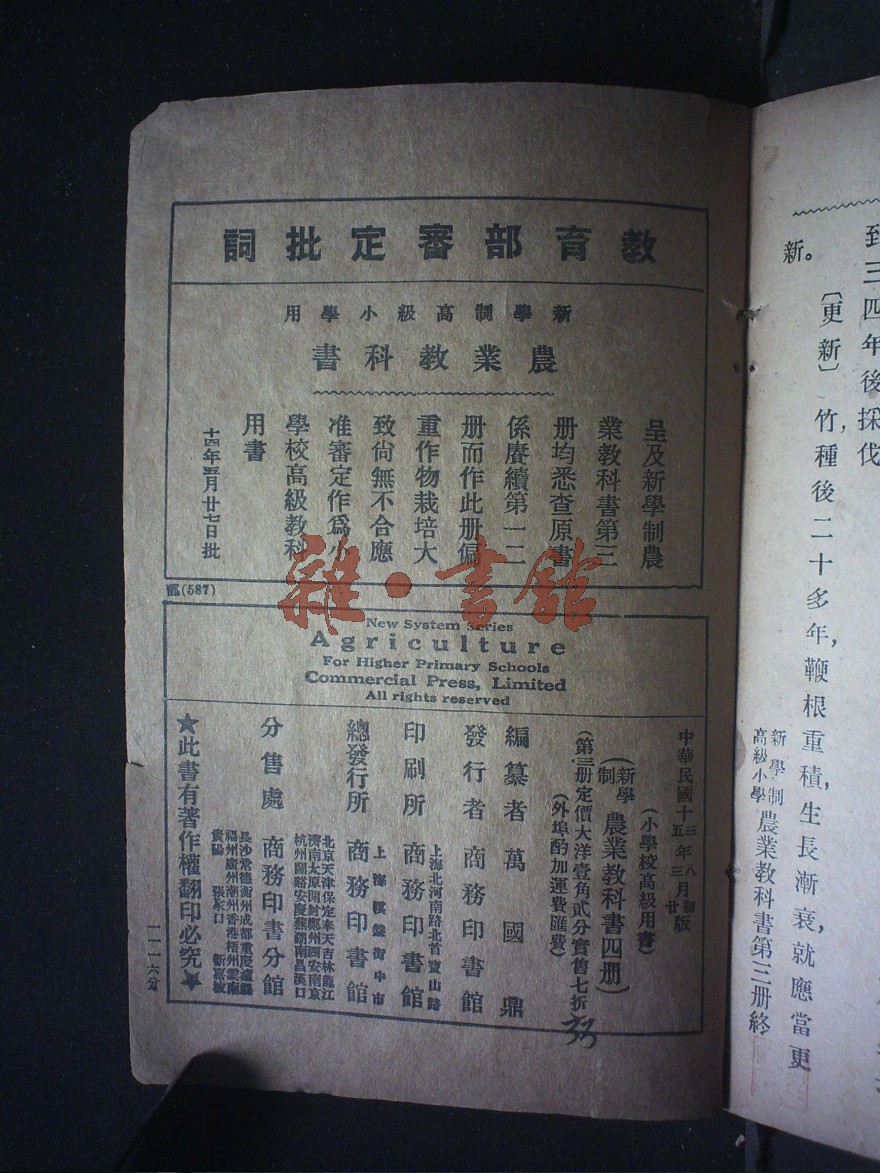 致三四年後採伐，
新。〔更新〕竹種後二十多年，鞭根重積，生長漸衰，就應當更
新學制高級小學農業教科書第三册終
教育部審定批詞
新學制高級小學用
農業教科書
呈及新學制農
業教科書第三
册均悉查原書
係賡續第一二
册而作此册偏
重作物栽培大
致尚無不合應
准審定作爲小
學校高級教科
用書
十四年五月廿七日批
部(587)
New System Series
Agriculture
For Higher Primary Schools
Commercial Press, Limited
All rights reserved
中華民國十三年八月初版
十五年三月廿版
(小學校高級用書)
(新學制農業教科書四册)
(第三册定價大洋壹角貳分實售七折)
(外埠酌加運費匯費)
編纂者 萬國鼎
發行者 商務印書館
印刷所 上海北河南路北首寶山路 商務印書館
總發行所 上海棋盤街中市 商務印書館
分售處 北京天津保定奉天吉林龍江
濟南太原開封鄭州西安南京
杭州蘭谿安慶蕪湖南昌漢口
商務印書分館
長沙常德衡州成都重慶瀘縣
福州廣州潮州香港梧州雲南
貴陽 張家口 新嘉坡
★此書有著作權翻印必究★
一一一六分
33
雜·書館